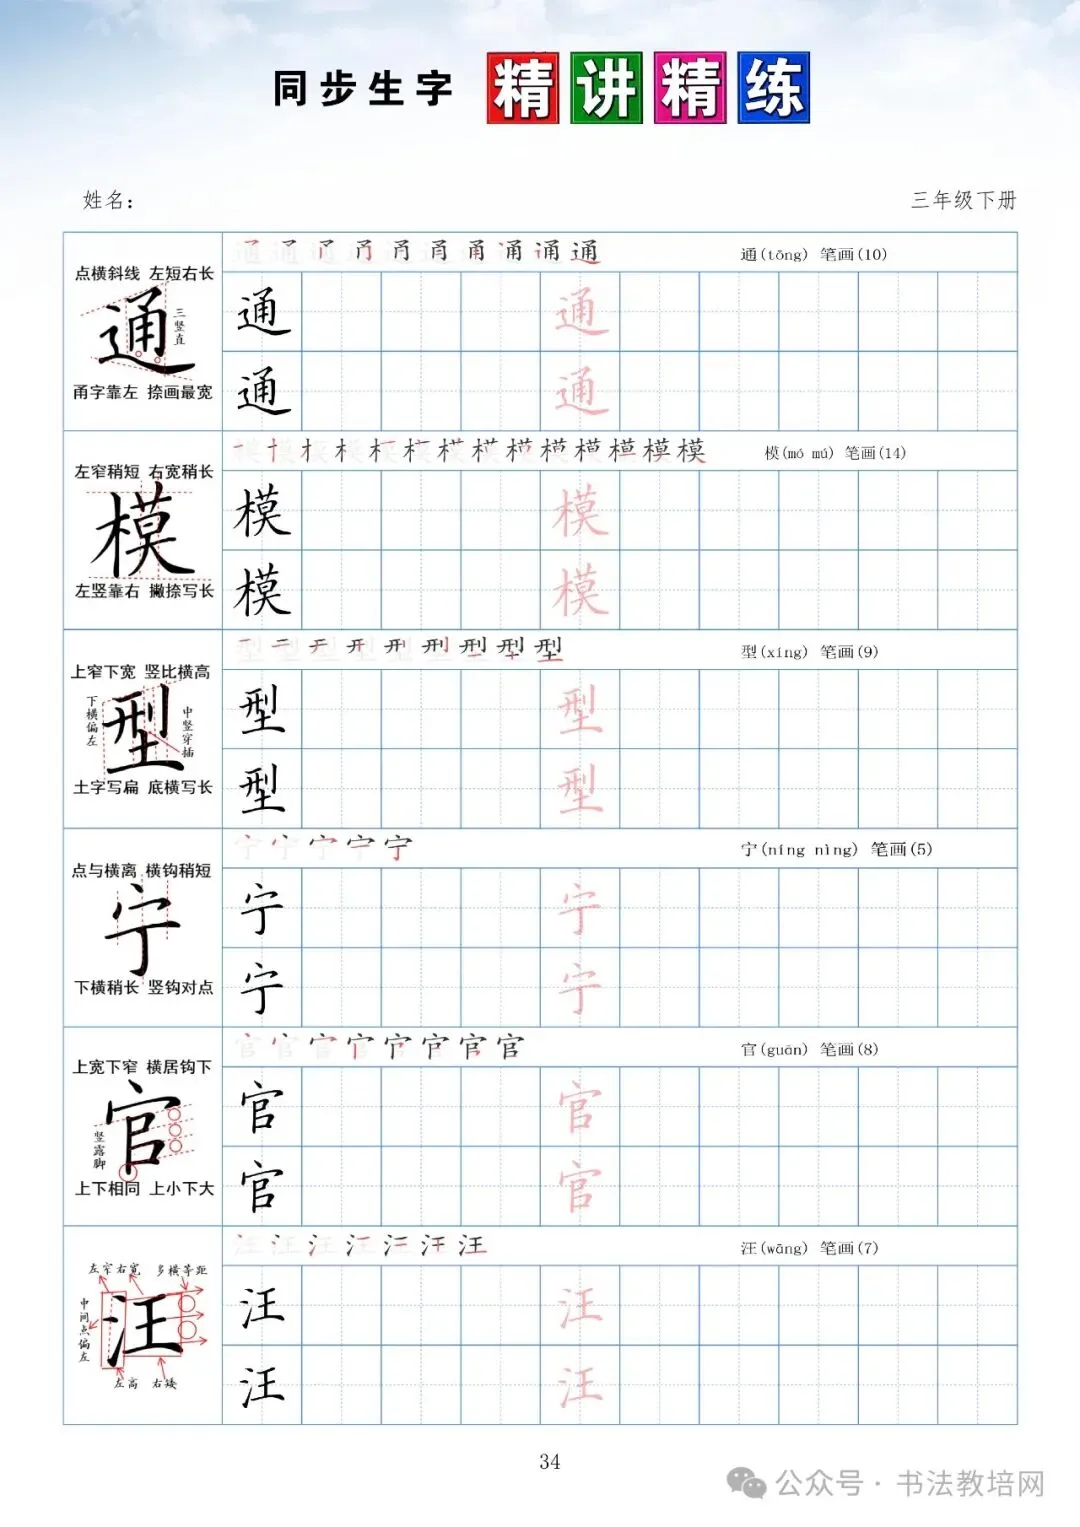 同步生字 精讲精练
姓名：
三年级下册
点横斜线 左短右长
通
三竖直
甬字靠左 捺画最宽
通(tōng) 笔画(10)
通 通
通 通
左窄稍短 右宽稍长
模
左竖靠右 撇捺写长
模(mó mú) 笔画(14)
模 模
模 模
上窄下宽 竖比横高
下横偏左
型
中竖穿插
土字写扁 底横写长
型(xíng) 笔画(9)
型 型
型 型
点与横离 横钩稍短
宁
下横稍长 竖钩对点
宁(níng nìng) 笔画(5)
宁 宁
宁 宁
上宽下窄 横居钩下
官
竖露脚
上下相同 上小下大
官(guān) 笔画(8)
官 官
官 官
左窄右宽 多横等距
中间点偏左
汪
左高 右矮
汪(wāng) 笔画(7)
汪 汪
汪 汪
34
公众号·书法教培网